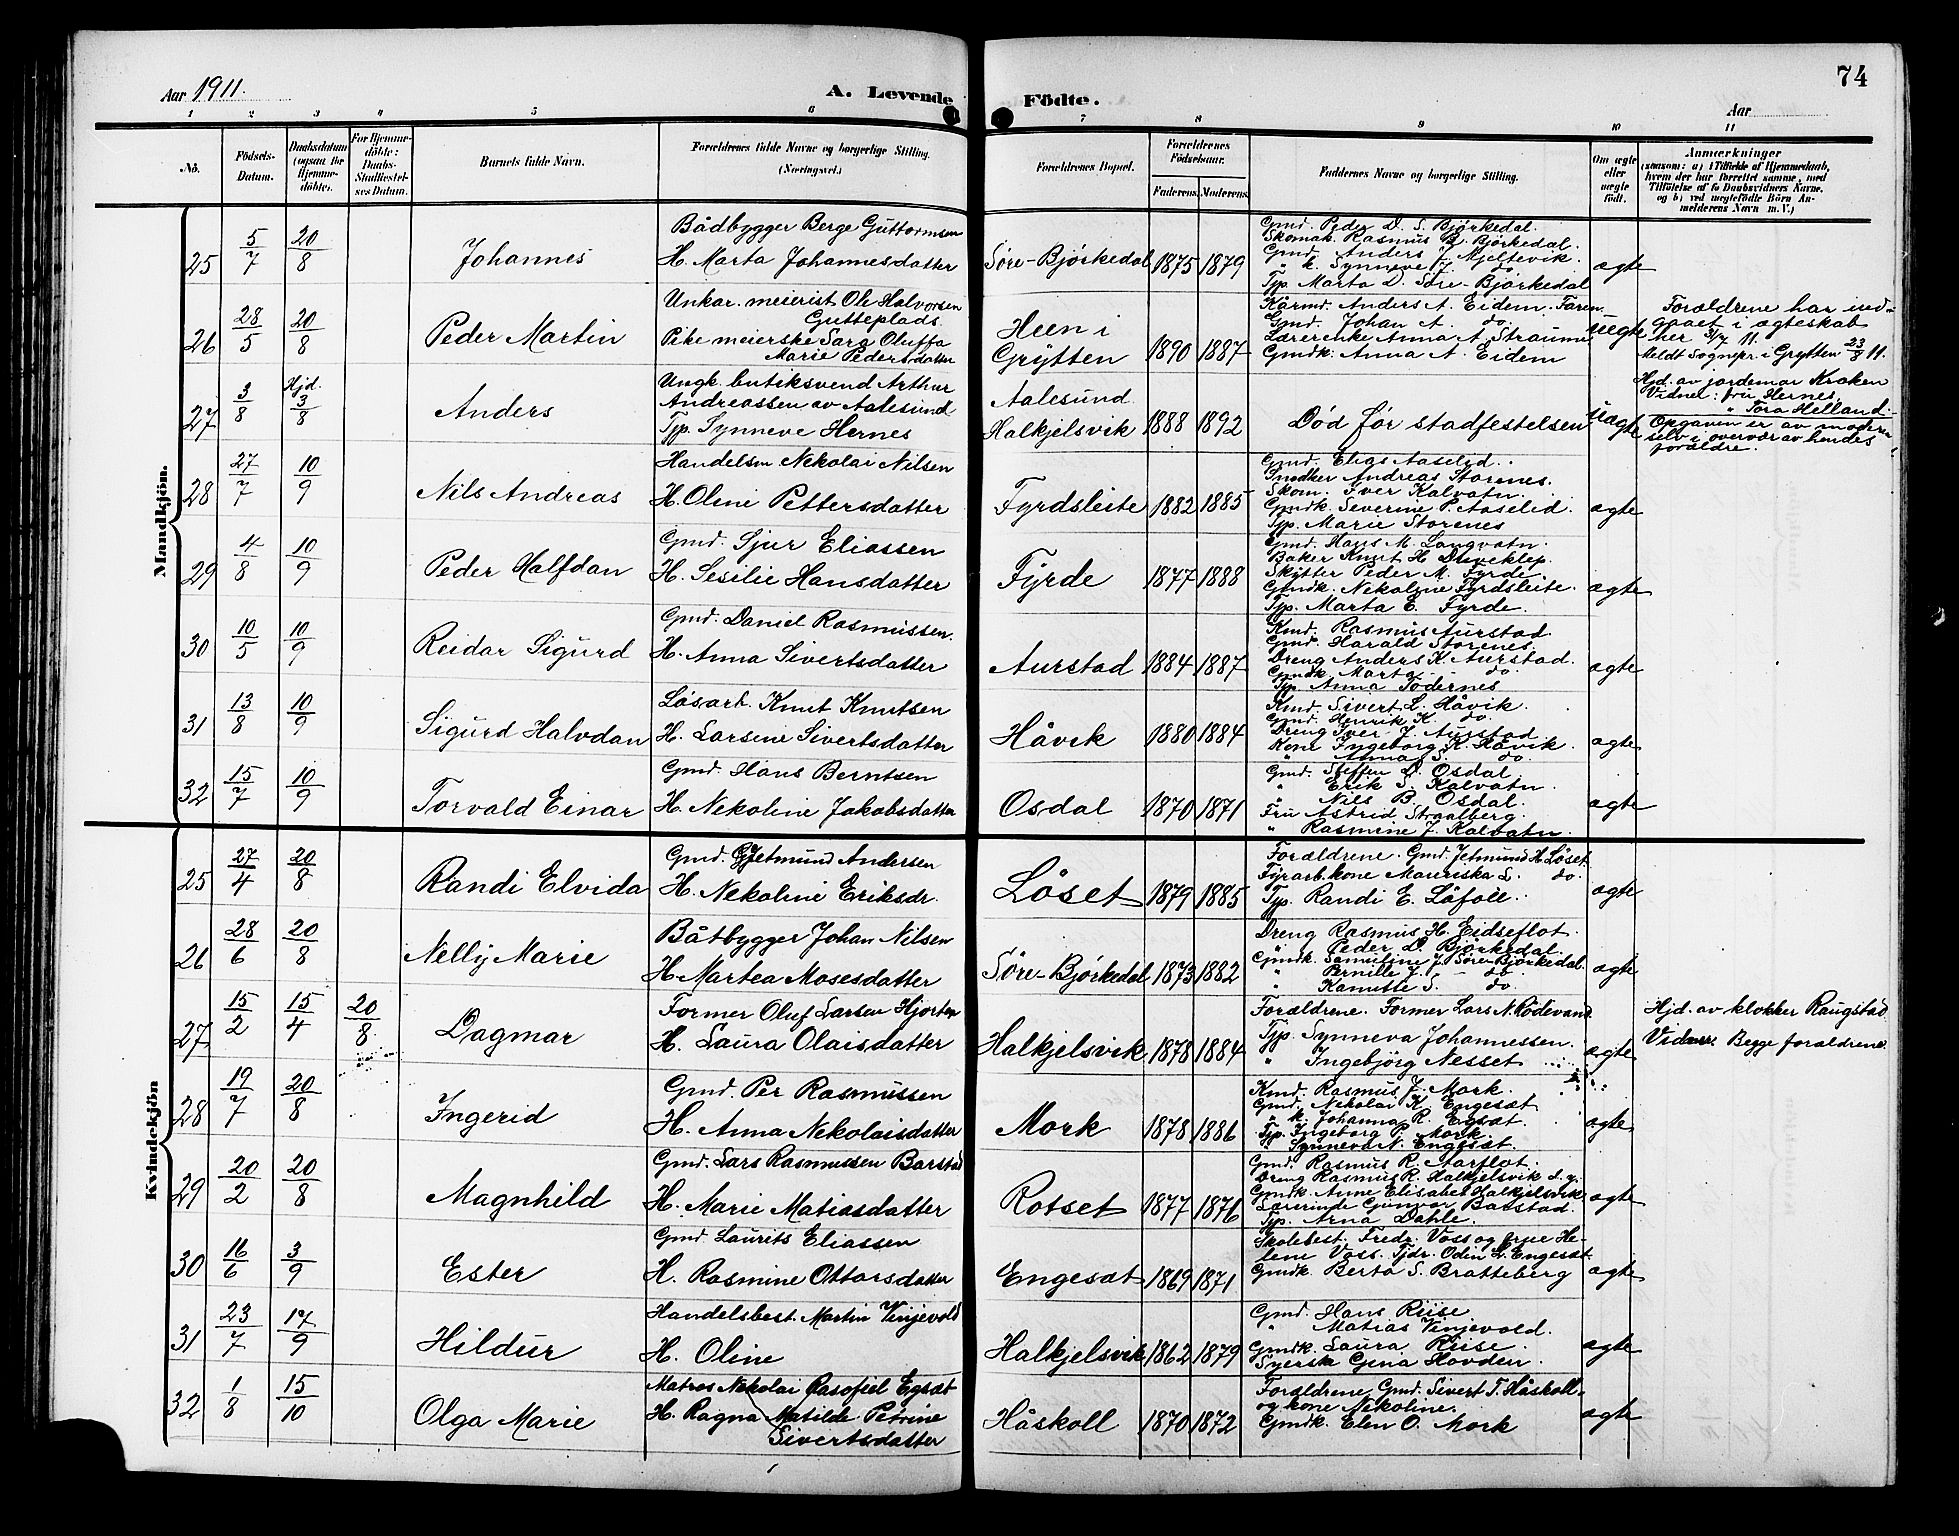 Aar 1911.
A. Levende Födte.
74
Aar
1 2 3 4 5 6 7 8 9 10 11
No.
Födsels-Datum.
Daabsdatum (ogsaa for Hjemme-döbte).
For Hjemme-döbte: Daabs-Stadfæstelses Datum.
Barnets fulde Navn.
Forældrenes fulde Navne og borgerlige Stilling.
(Næringsvei.)
Forældrenes Bopæl.
Forældrenes Födselsaar.
Faderens. Moderens.
Faddernes Navne og borgerlige Stilling.
Om ægte eller uægte födt.
Anmærkninger
(saasom: a) i Tilfælde af Hjemmedaab,
hvem der har forrettet samme, med
Tilföielse af to Daabsvidners Navne,
og b) ved uegtefödte Börn An-
melderens Navn m. V.)
Mandkjön.
25 5/7 20/8 Johannes
Bådbygger Berge Guttormsen
H. Marta Johannesdatter
Søre-Bjørkedal 1875 1879
Gmd. Peder D. S. Bjørkedal.
Skomak. Rasmus R. Bjørkedal.
Gmd. Anders J. Mjeltevik.
" k. Synneve J. do
Tjp. Marta D. Søre-Bjørkedal
ægte
26 28/5 20/8 Peder Martin
Unkar. meierist Ole Halvorsen
Gutteplads.
Pike meierske Sara Oluffa
Marie Pedersdatter
Heen i
Grytten 1890 1887
Kårmd. Anders A. Eidem. Faren.
Gmd. Johan A. do.
Lærerenke Anna A. Straume
Gmdk. Anna A. Eidem
uegte
Forældrene har ind-
gaaet i ægteskab
her 3/7 11.
Meldt Sognepr. i Grytten 23/8 11.
27 3/8 Hjd. 3/8 Anders
Ungk. butiksvend Arthur
Andreassen av Aalesund
Tjp. Synneve Hernes
Aalesund
Halkjelsvik 1888 1892
Død før stadfestelsen
uægte
Hjd. av jordemor Kraken
Vidner: fru Hernes,
" Tora Helland.
Opgaven er av moderen
selv i overvær av hendes
forældre.
28 27/7 10/9 Nils Andreas
Handelsm Nekolai Nilsen
H. Oline Pettersdatter
Fyrdsleite 1882 1885
Gmd. Elias Aaselid.
Snedker Andreas Storenes.
Skom. Iver Kalvatn.
Gmdk. Severine P. Aaselid.
Tjp. Marie Storenes
ægte
29 4/8 10/9 Peder Halfdan
Gmd. Sjur Eliassen
H. Sesilie Hansdatter
Fyrde 1877 1888
Gmd. Hans M. Langvatn.
Baker Knut H. Driveklep.
Skytter Peder M. Fyrde
Gmdk. Nekoline Fyrdsleite.
Tjp. Marta E. Fyrde.
ægte
30 10/5 10/9 Reidar Sigurd
Gmd. Daniel Rasmussen.
H. Anna Sivertsdatter
Aurstad 1884 1887
Kmd. Rasmus Aurstad
Gmd. Harald Storenes.
Dreng Anders K. Aurstad.
Gmdk. Marta do.
Tjp. Anna Södernes
ægte
31 13/8 10/9 Sigurd Halvdan
Løsarb. Knut Knutsen
H. Larsine Sivertsdatter
Håvik 1880 1884
Kmd. Sivert L. Håvik.
Gmd. Henrik K. do.
Dreng Iver J. Aurstad
Kone Ingeborg K. Håvik.
" Anna S. do.
ægte
32 15/7 10/9 Torvald Einar
Gmd. Hans Berntsen
H. Nekoline Jakobsdatter
Osdal 1870 1871
Gmd. Steffen D. Osdal
" Erik S. Kalvatn.
" Nils B. Osdal.
Fru Astrid Straalberg.
" Rasmine J. Kalvatn.
ægte
Kvindekjön
25 27/4 20/8 Randi Elvida
Gmd. Gjetmund Andersen
H. Nekoline Eriksdr.
Løset 1879 1885
Forældrene. Gmd. Jetmund H. Løset.
Fyrarb.kone Mauriska L. do.
Tjp. Randi E. Låfoll.
ægte
26 28/6 20/8 Nelly Marie
Båtbygger Johan Nilsen
H. Martea Mosesdatter
Søre-Bjørkedal 1873 1882
Dreng Rasmus H. Eidseflot.
" Peder D. Bjørkedal.
Gmdk. Samuline J. Søre-Bjørkedal.
" Pernille J. – do.
" Kamilte S. do.
ægte
27 15/2 15/4 20/8 Dagmar
Former Oluf Larsen Hjorten
H. Laura Olaisdatter
Halkjelsvik 1878 1884
Forældrene. Former Lars N. Rødevand
Tjp. Synneva Johannessen.
" Ingebjörg Nesset
ægte
Hjd. av klokker Raugstad.
Vidner. Begge forældrene.
28 19/7 20/8 Ingerid
Gmd. Per Rasmussen
H. Anna Nekolaisdatter
Mork 1878 1886
Kmd. Rasmus J. Mork.
Gmd. Nekolai K. Engesæt
" k. Johanna R. Egsæt.
Tjp. Ingeborg P. Mork.
" Synneve N. Engesæt.
ægte
29 20/2 20/8 Magnhild
Gmd. Lars Rasmussen Barstad
H. Marie Matiasdatter
Rotset 1877 1876
Gmd. Rasmus R. Aarflot.
Dreng Rasmus R. Halkjelsvik d. y.
Gmdk. Anne Elisabet Halkjelsvik
Lærerinde Gunvor Barstad.
Tjp. Arna Dahle.
ægte
30 16/6 3/9 Ester
Gmd. Laurits Eliassen
H. Rasmine Ottarsdatter
Engesæt 1869 1871
Skolebest. Fredr. Voss og frue He-
lene Voss. Tjdr. Odin L. Engesæt
Gmdk. Berta S. Bratteberg
ægte
31 23/7 17/9 Hildur
Handelsbest. Martin Vinjevold
H. Oline
Halkjelsvik 1862 1879
Gmd. Hans Riise
" Matias Vinjevold.
Gmdk. Laura Riise.
Syerska Gjena Hovden.
ægte
32 1/8 15/10 Olga Marie
Matros Nekolai Rasofiel Egsæt
H. Ragna Matilde Petrine
Sivertsdatter
Håskoll 1870 1872
Forældrene, Gmd. Sivert T. Håskoll
og kone Nekoline.
Gmdk. Elen O. Mork
ægte